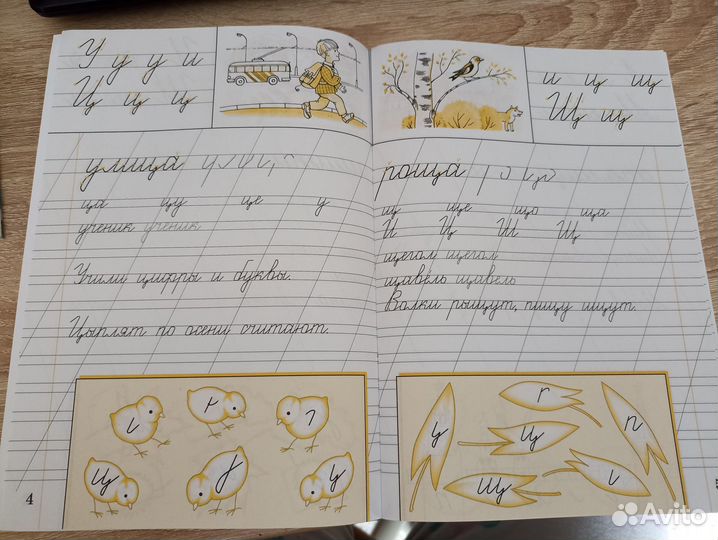 У у у и
Ц ц ц
улица
ца цу це у
ученик ученик
Учили цифры и буквы.
Цыплят по осени считают.
ц у
4
и ц щ
Щ щ
роща
щ ще що ща
И Ц Ш Щ
щегол щегол
щавель щавель
Волки рыщут, пищу ищут.
г
у ц п
щ
Avito